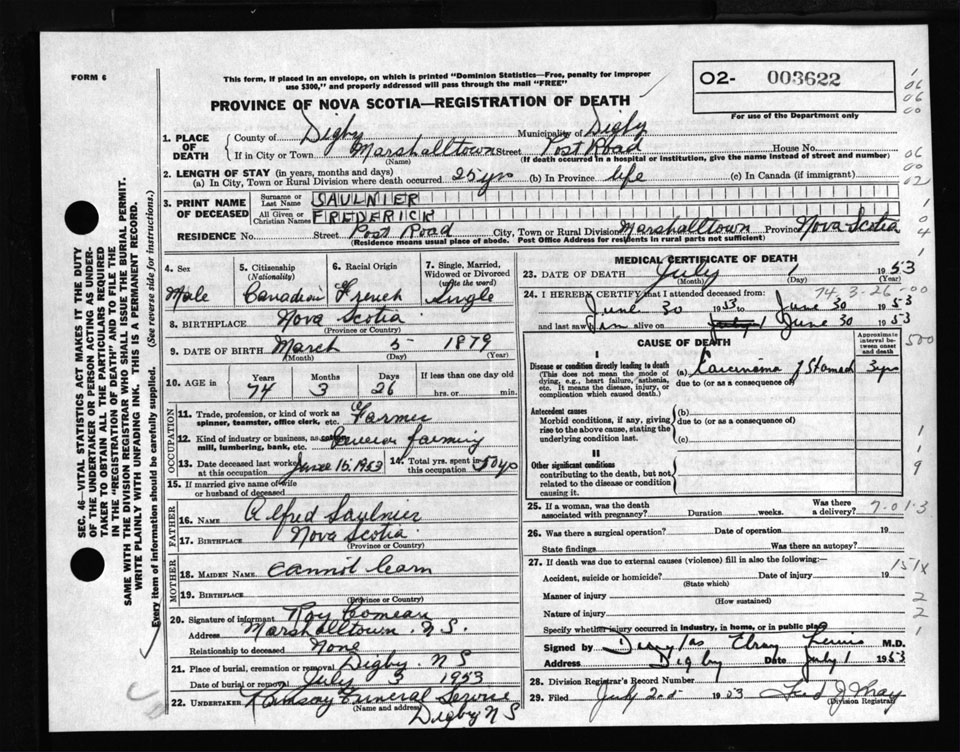 FORM 6
This form, if placed in an envelope, on which is printed "Dominion Statistics—Free, penalty for improper
use $300," and properly addressed will pass through the mail "FREE"
O2- 003622
For use of the Department only
PROVINCE OF NOVA SCOTIA—REGISTRATION OF DEATH
1. PLACE OF DEATH
County of Digby Municipality of Digby
If in City or Town Marshalltown Street Post Road House No.
(Name) (If death occurred in a hospital or institution, give the name instead of street and number)
2. LENGTH OF STAY (in years, months and days)
(a) In City, Town or Rural Division where death occurred 25 yrs (b) In Province life (c) In Canada (if immigrant)
3. PRINT NAME OF DECEASED
Surname or Last Name SAULNIER
All Given or Christian Names FREDERICK
RESIDENCE No. Street Post Road City, Town or Rural Division Marshalltown Province Nova Scotia
(Residence means usual place of abode. Post Office Address for residents in rural parts not sufficient)
4. Sex
Male
5. Citizenship
(Nationality)
Canadian
6. Racial Origin
French
7. Single, Married, Widowed or Divorced
(write the word)
Single
8. BIRTHPLACE Nova Scotia
(Province or Country)
9. DATE OF BIRTH March 5 1879
(Month) (Day) (Year)
10. AGE in Years Months Days If less than one day old
74 3 26 hrs. or min.
OCCUPATION
11. Trade, profession, or kind of work as
spinner, teamster, office clerk, etc. Farmer
12. Kind of industry or business, as cotton
mill, lumbering, bank, etc. farming
13. Date deceased last worked
at this occupation June 15, 1953
14. Total yrs. spent in
this occupation 50 yrs
15. If married give name of wife
or husband of deceased
FATHER
16. NAME Alfred Saulnier
17. BIRTHPLACE Nova Scotia
(Province or Country)
MOTHER
18. MAIDEN NAME cannot learn
19. BIRTHPLACE
(Province or Country)
20. Signature of informant Roy Comeau
Address Marshalltown. N.S.
Relationship to deceased None
21. Place of burial, cremation or removal Digby. NS
Date of burial or removal July 3 1953
22. UNDERTAKER Ramsay Funeral Service
(Name and address)
Digby NS
MEDICAL CERTIFICATE OF DEATH
23. DATE OF DEATH July 1 1953
(Month) (Day) (Year)
74 3-26-00
24. I HEREBY CERTIFY that I attended deceased from:
June 30 1953 to June 30 1953
and last saw him alive on July 1 June 30 1953
CAUSE OF DEATH
Approximate interval between onset and death
I
Disease or condition directly leading to death
(This does not mean the mode of dying, e.g., heart failure, asthenia, etc. It means the disease, injury, or complication which caused death.)
(a) Carcinoma of Stomach 3 yrs
due to (or as a consequence of)
Antecedent causes
Morbid conditions, if any, giving rise to the above cause, stating the underlying condition last.
(b)
due to (or as a consequence of)
(c)
II
Other significant conditions
contributing to the death, but not related to the disease or condition causing it.
25. If a woman, was the death
associated with pregnancy? Duration weeks. Was there a delivery?
26. Was there a surgical operation? Date of operation 19
State findings Was there an autopsy?
27. If death was due to external causes (violence) fill in also the following:—
Accident, suicide or homicide? Date of injury 19
(State which)
Manner of injury
(How sustained)
Nature of injury
Specify whether injury occurred in industry, in home, or in public place
Signed by Lewis M.D.
Address Digby Date July 1 1953
28. Division Registrar's Record Number
29. Filed July 2nd 1953 Fred J. May
(Division Registrar)
SEC. 46—VITAL STATISTICS ACT MAKES IT THE DUTY
OF THE UNDERTAKER OR PERSON ACTING AS UNDER-
TAKER TO OBTAIN ALL THE PARTICULARS REQUIRED
IN THE "REGISTRATION OF DEATH" AND TO FILE THE
SAME WITH THE DIVISION REGISTRAR WHO SHALL ISSUE THE BURIAL PERMIT.
WRITE PLAINLY WITH UNFADING INK. THIS IS A PERMANENT RECORD.
Every item of information should be carefully supplied. (See reverse side for instructions.)
06
06
00
06
00
02
1
0
4
500
1
9
7-01-3
151X
2
2